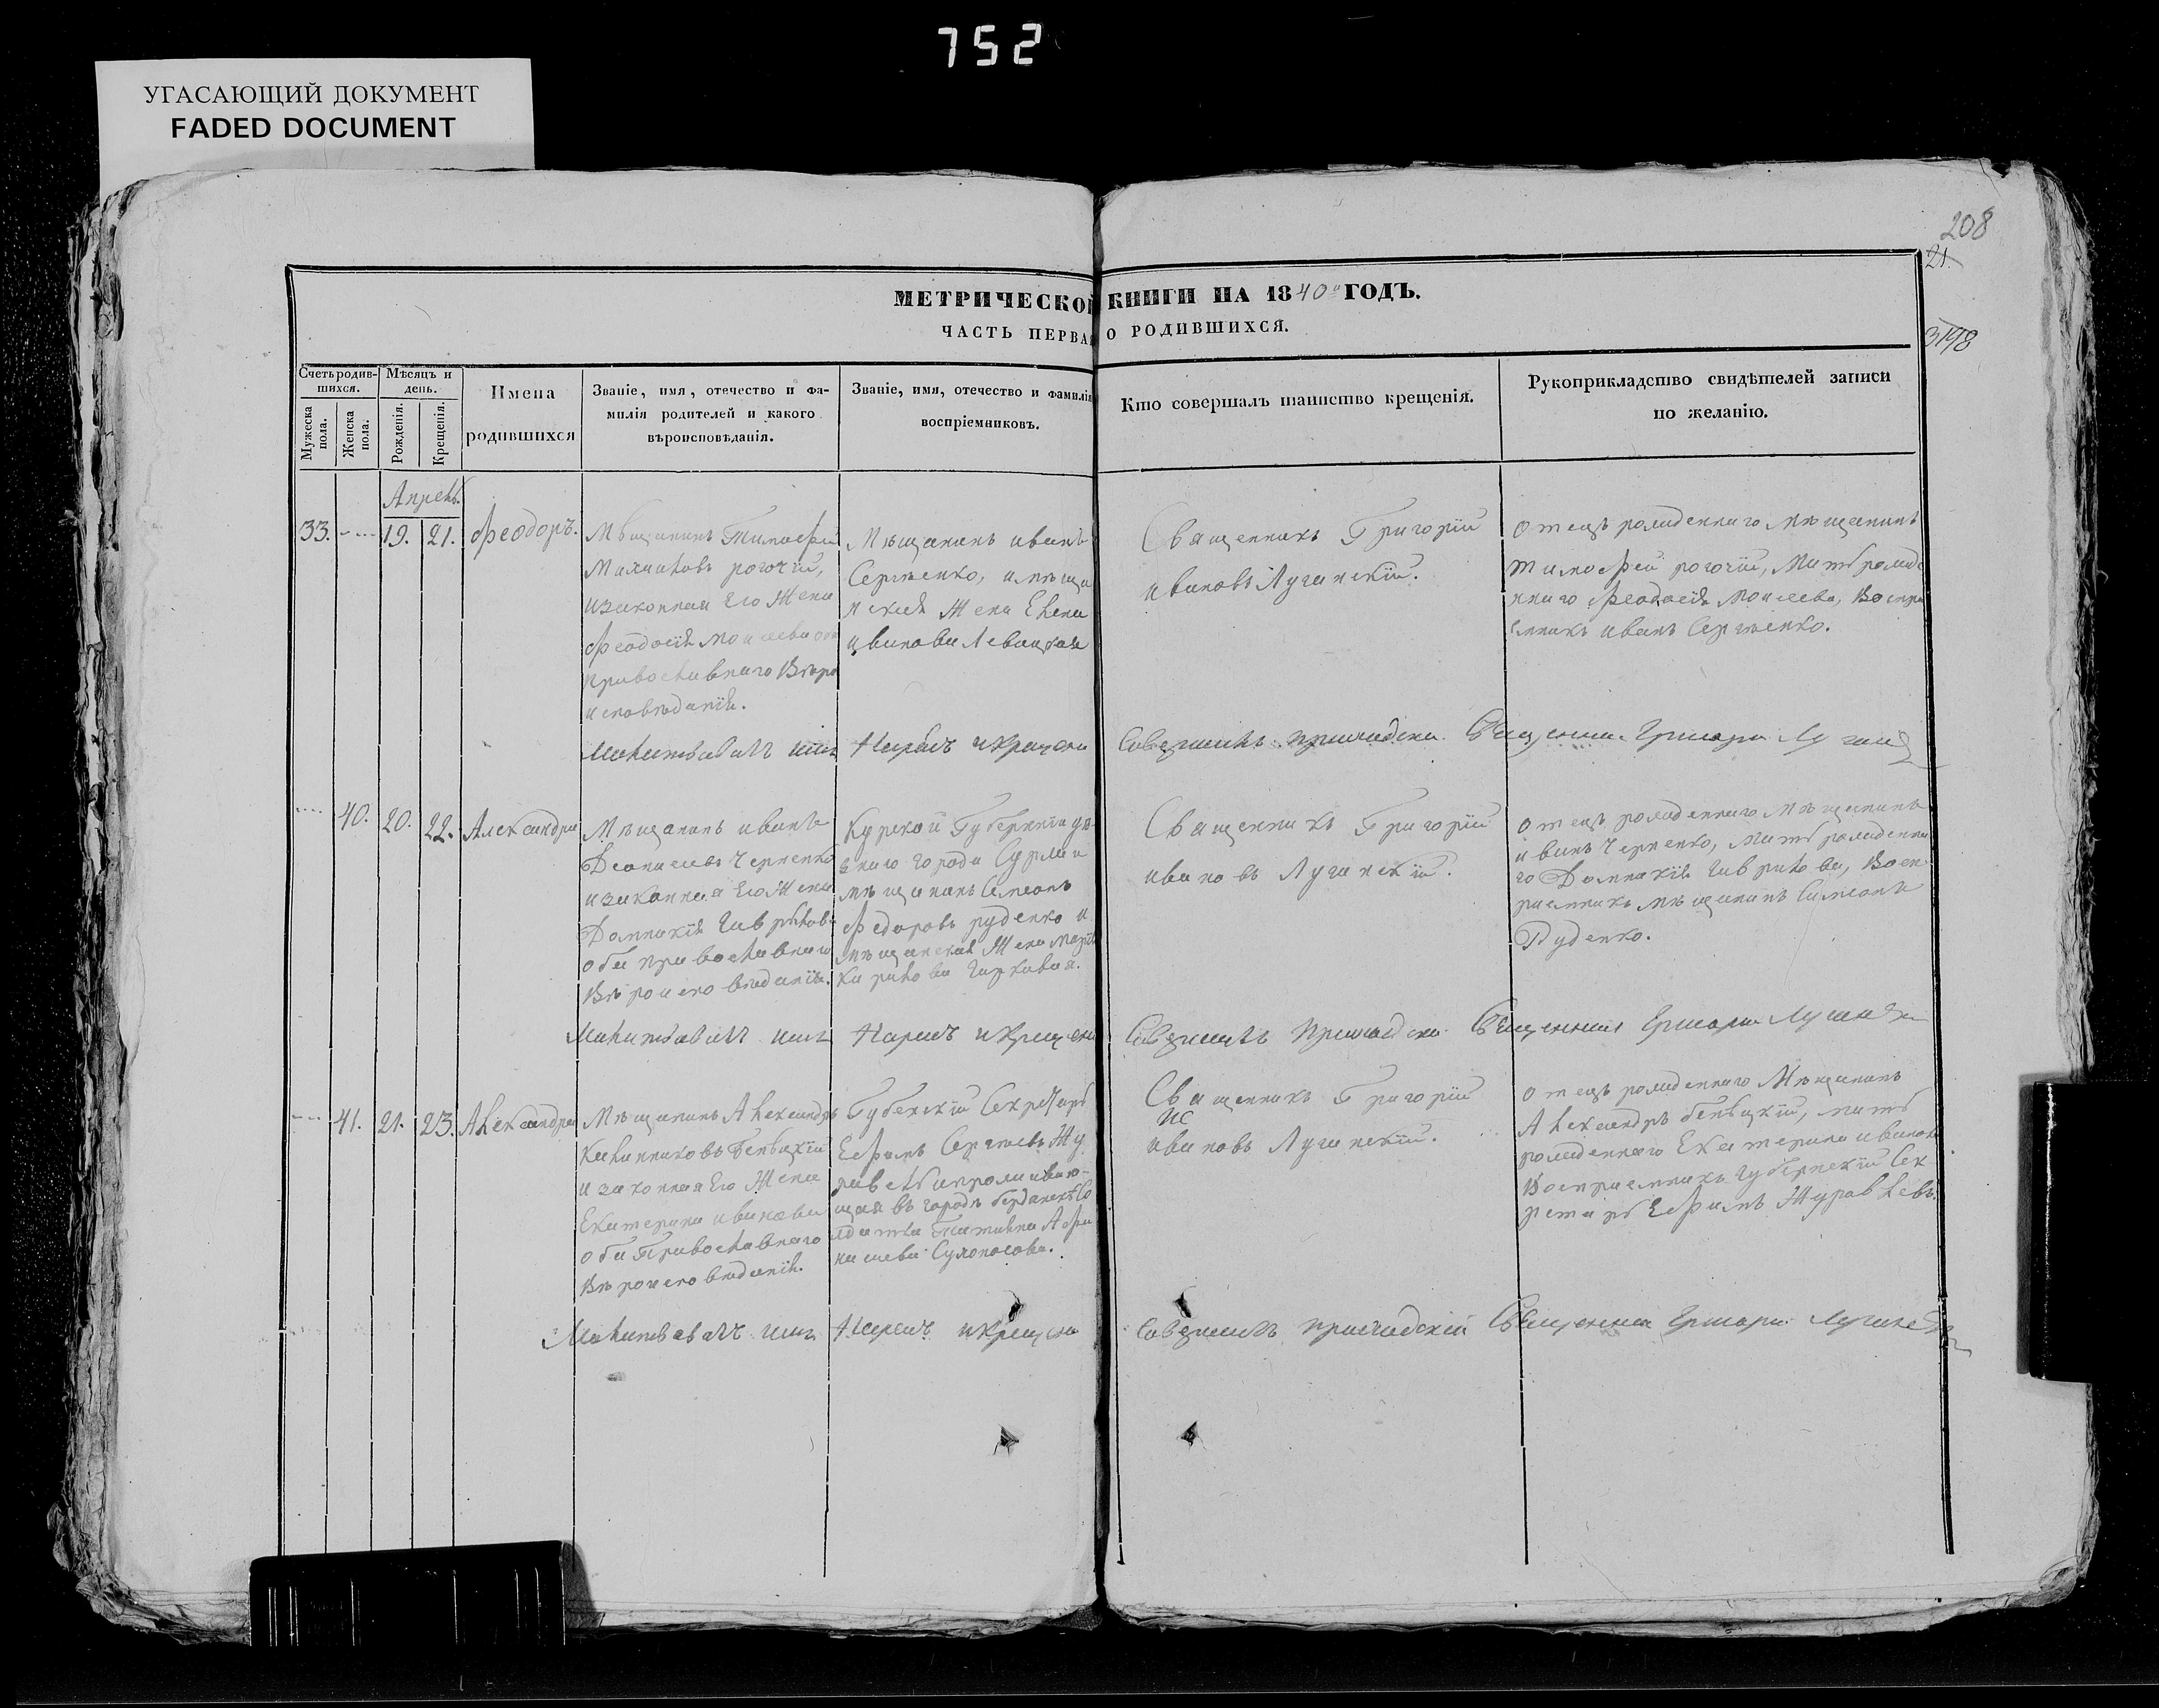 752
УГАСАЮЩИЙ ДОКУМЕНТ
FADED DOCUMENT
208
21.
3198
МЕТРИЧЕСКОЙ КНИГИ НА 1840й ГОДЪ.
ЧАСТЬ ПЕРВАЯ О РОДИВШИХСЯ.
Счетъ родив-
шихся.
Мужеска
пола.
Женска
пола.
Мѣсяцъ и
день.
Рожденія.
Крещенія.
Имена
родившихся
Званіе, имя, отечество и фа-
милія родителей и какого
вѣроисповѣданія.
Званіе, имя, отечество и фамилія
воспріемниковъ.
Кто совершалъ таинство крещенія.
Рукоприкладство свидѣтелей записи
по желанію.
Апрель.
33. 19. 21. Феодоръ.
Мѣщанинъ Тимофей
Михаиловъ рогочій,
изаконная Его Жена
Феодосія моисеева оба
православнаго Вѣро
исповѣданія.
Мѣщанинъ иванъ
Сергѣенко, имѣща
нская Жена Елена
иванова Левицкая
Священникъ Григорій
ивановъ Луганскій.
отецъ рожденнаго мѣщанинъ
тимофей рогочій, Мать рожде
ннаго Феодосія Моисеева, Воспри
емникъ иванъ Сергѣенко.
Молитвовалъ имя Нарекъ и Крещение Совершилъ приходски Священник Григори Луганс
40. 20. 22. Александра
Мѣщанинъ иванъ
Деонисиевъ Черненко
изаконная Его Жена
Домникія Гаврилова
оба православнаго
Вѣроисповѣданія.
Курской Губерніи уѣ
знаго города Суджи
мѣщанинъ Симеонъ
Федоровъ руденко и
мѣщанская Жена Марія
Кирилова
Священникъ Григорій
ивановъ Луганскій.
отецъ рожденнаго мѣщанинъ
иванъ Черненко, Мать рожденна
го Домникія Гаврилова, Восп
риемникъ мѣщанинъ Симеонъ
Руденко.
Молитвовалъ имя Нарекъ и Крещение Совершилъ Приходски Священник Григори Луганс
41. 21. 23. Александра
Мѣщанинъ Александръ
Калинниковъ Бенѣцкій
изаконная Его Жена
Екатерина иванова
оба Православнаго
Вѣроисповѣданія.
Губенскій Секретарь
Ефимъ Сергѣевъ Жу
равль ипроживаю-
щая въ городѣ бердянскѣ Со
лдатка Татиана Афа
насиева Сухоносова.
Священникъ Григорій
ивановъ Луганскій.
отецъ рожденнаго Мѣщанинъ
Александръ бенѣцкій, мать
рожденнаго Екатерина иванова
Восприемникъ Губернскій Сек
ретарь Ефимъ Журавлевъ.
Молитвовалъ имя Нарекъ и Крещение Совершилъ приходскій Священник Григори Луганс